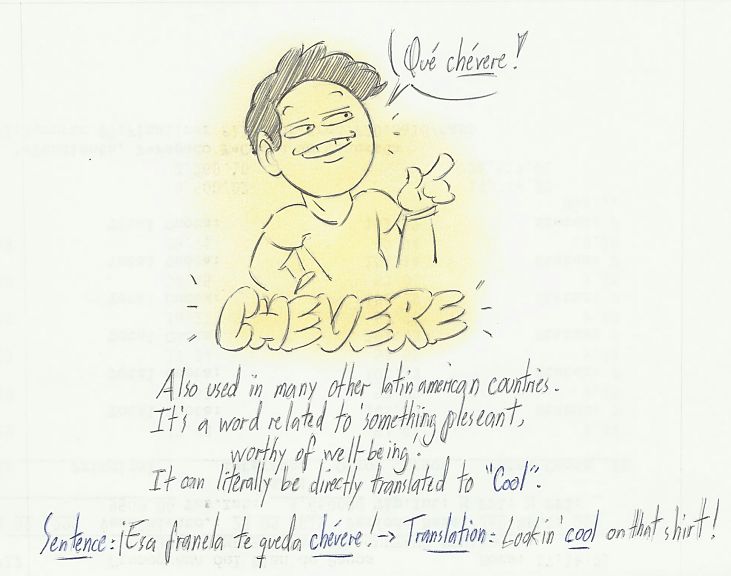 Qué chévere!
CHÉVERE
Also used in many other latin american countries.
It's a word related to 'something pleseant,
worthy of well-being'.
It can literally be directly translated to "Cool".
Sentence: ¡Esa franela te queda chévere! → Translation: Lookin' cool on that shirt!